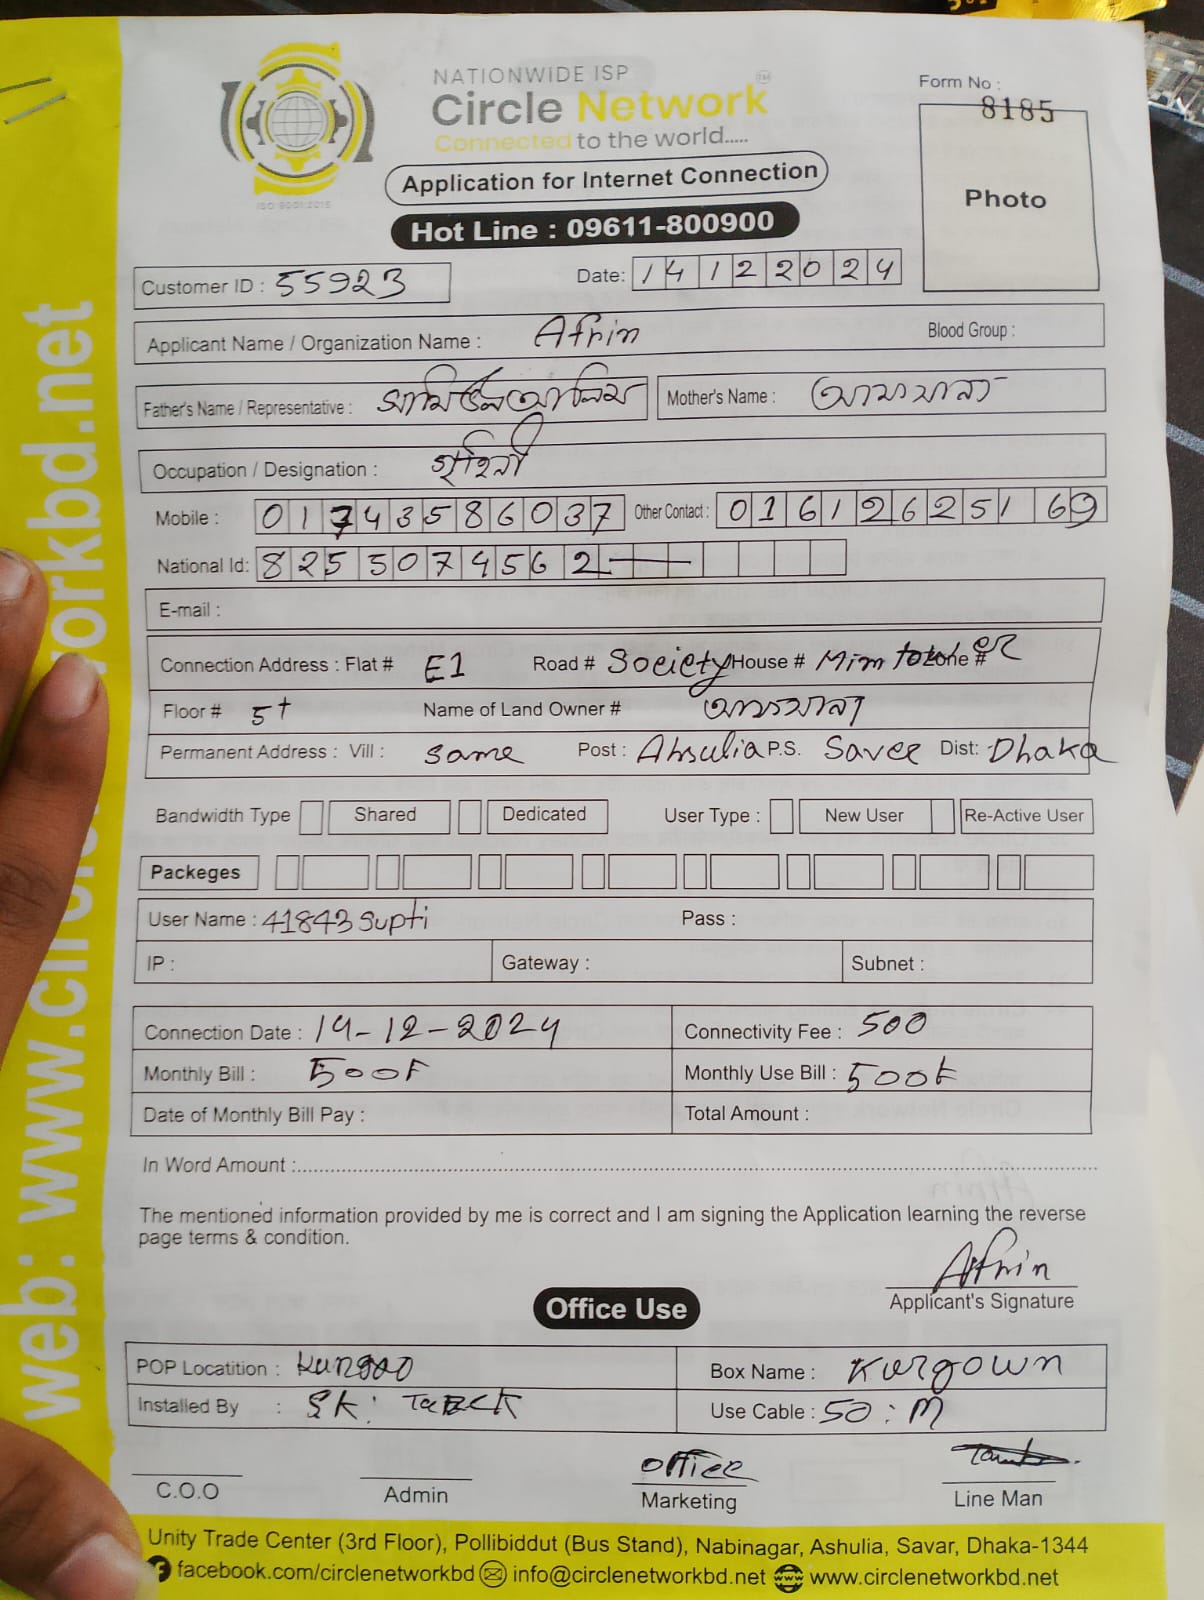 NATIONWIDE ISP
Circle Network TM
Connected to the world.....
ISO 9001:2015
Form No :
8185
Photo
Application for Internet Connection
Hot Line : 09611-800900
Customer ID : 55923 Date: 14122024
Applicant Name / Organization Name : Afrin Blood Group :
Father's Name / Representative : Mother's Name :
Occupation / Designation : গৃহিনী
Mobile : 01743586037 Other Contact : 01612625169
National Id: 8255074562
E-mail :
Connection Address : Flat # E1 Road # Society House # Mim Zone #
Floor # 5t Name of Land Owner #
Permanent Address : Vill : same Post : Ahsulia P.S. Saver Dist: Dhaka
Bandwidth Type Shared Dedicated User Type : New User Re-Active User
Packeges
User Name : 41843supti Pass :
IP : Gateway : Subnet :
Connection Date : 14-12-2024 Connectivity Fee : 500
Monthly Bill : 500t Monthly Use Bill : 500t
Date of Monthly Bill Pay : Total Amount :
In Word Amount :
The mentioned information provided by me is correct and I am signing the Application learning the reverse
page terms & condition.
Afrin
Applicant's Signature
Office Use
POP Locatition : Box Name : Kurgown
Installed By : SK: Use Cable : 50:M
office
C.O.O Admin Marketing Line Man
Unity Trade Center (3rd Floor), Pollibiddut (Bus Stand), Nabinagar, Ashulia, Savar, Dhaka-1344
facebook.com/circlenetworkbd info@circlenetworkbd.net www.circlenetworkbd.net
web: www.circlenetworkbd.net